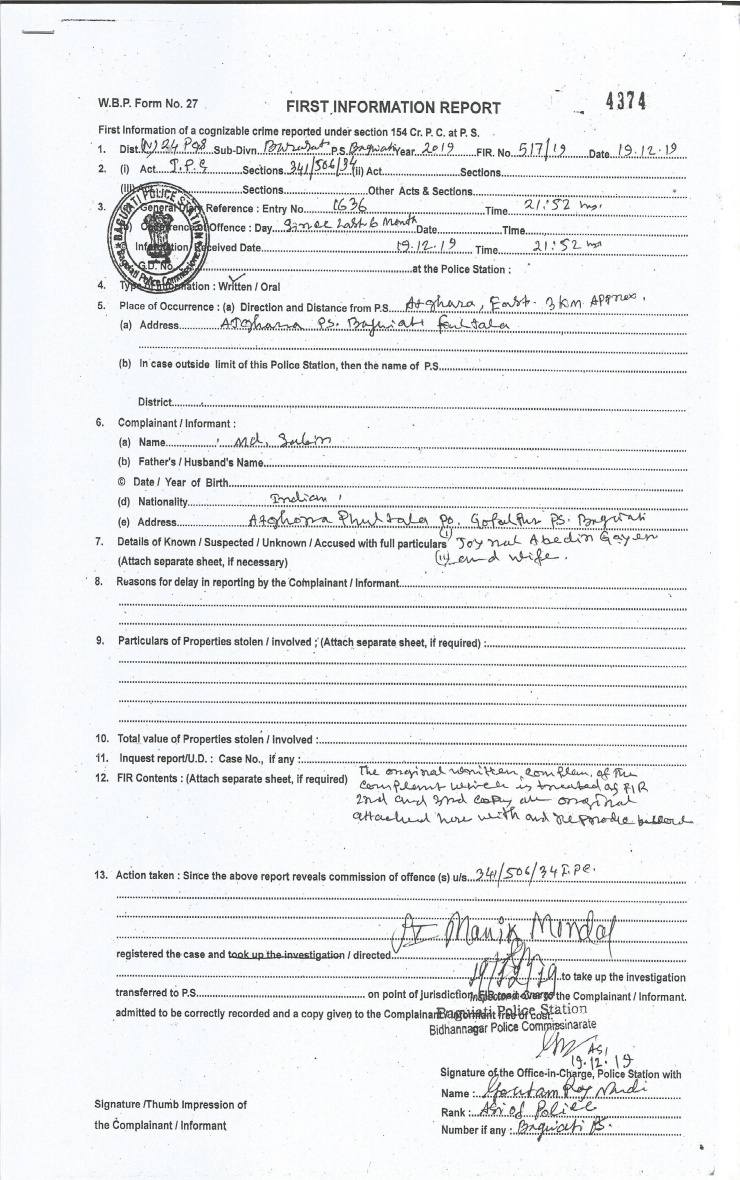 W.B.P. Form No. 27
FIRST INFORMATION REPORT
4374
First Information of a cognizable crime reported under section 154 Cr. P. C. at P. S.
1. Dist. (N) 24 PGS Sub-Divn. Barasat P.S. Baguiati Year 2019 FIR. No. 517/19 Date 19.12.19
2. (i) Act I.P.C Sections 341/506/34 (ii) Act Sections
(iii) Sections Other Acts & Sections
3. (a) General Diary Reference : Entry No. 1636 Time 21:52 hrs.
(b) Occurrence of Offence : Day Since last 6 Month Date Time
Information Received Date 19.12.19 Time 21:52 hrs
G.D. No. at the Police Station :
BAGUIATI POLICE STATION
4. Type of Information : Written / Oral
5. Place of Occurrence : (a) Direction and Distance from P.S. Atghara, East. 3 Km Approx.
(a) Address Atghara PS. Baguiati
(b) In case outside limit of this Police Station, then the name of P.S.
District
6. Complainant / Informant :
(a) Name Md. Sabir
(b) Father's / Husband's Name
© Date / Year of Birth
(d) Nationality Indian
(e) Address Atghora Phultala Po. Gopalpur PS. Baguiati
7. Details of Known / Suspected / Unknown / Accused with full particulars (i) Joynal Abedin Gayen
(Attach separate sheet, if necessary) (ii) and wife.
8. Reasons for delay in reporting by the Complainant / Informant
9. Particulars of Properties stolen / involved ; (Attach separate sheet, if required) :
10. Total value of Properties stolen / Involved :
11. Inquest report/U.D. : Case No., if any :
12. FIR Contents : (Attach separate sheet, if required) The original written complain of the
complaint which is treated as FIR
2nd and 3rd copy an original
attached here with and
13. Action taken : Since the above report reveals commission of offence (s) u/s. 341/506/34 I.P.C.
SI Manik Mondal
registered the case and took up the investigation / directed
19/12/19 to take up the investigation
transferred to P.S. on point of jurisdiction. FIR read over to the Complainant / Informant.
Inspector-in-Charge
admitted to be correctly recorded and a copy given to the Complainant / Informant free of cost.
Baguiati Police Station
Bidhannagar Police Commissinarate
ASI
19.12.19
Signature of the Office-in-Charge, Police Station with
Name : Goutam Roy Nandi
Signature /Thumb Impression of
Rank : ASI of Police
the Complainant / Informant
Number if any : Baguiati PS.